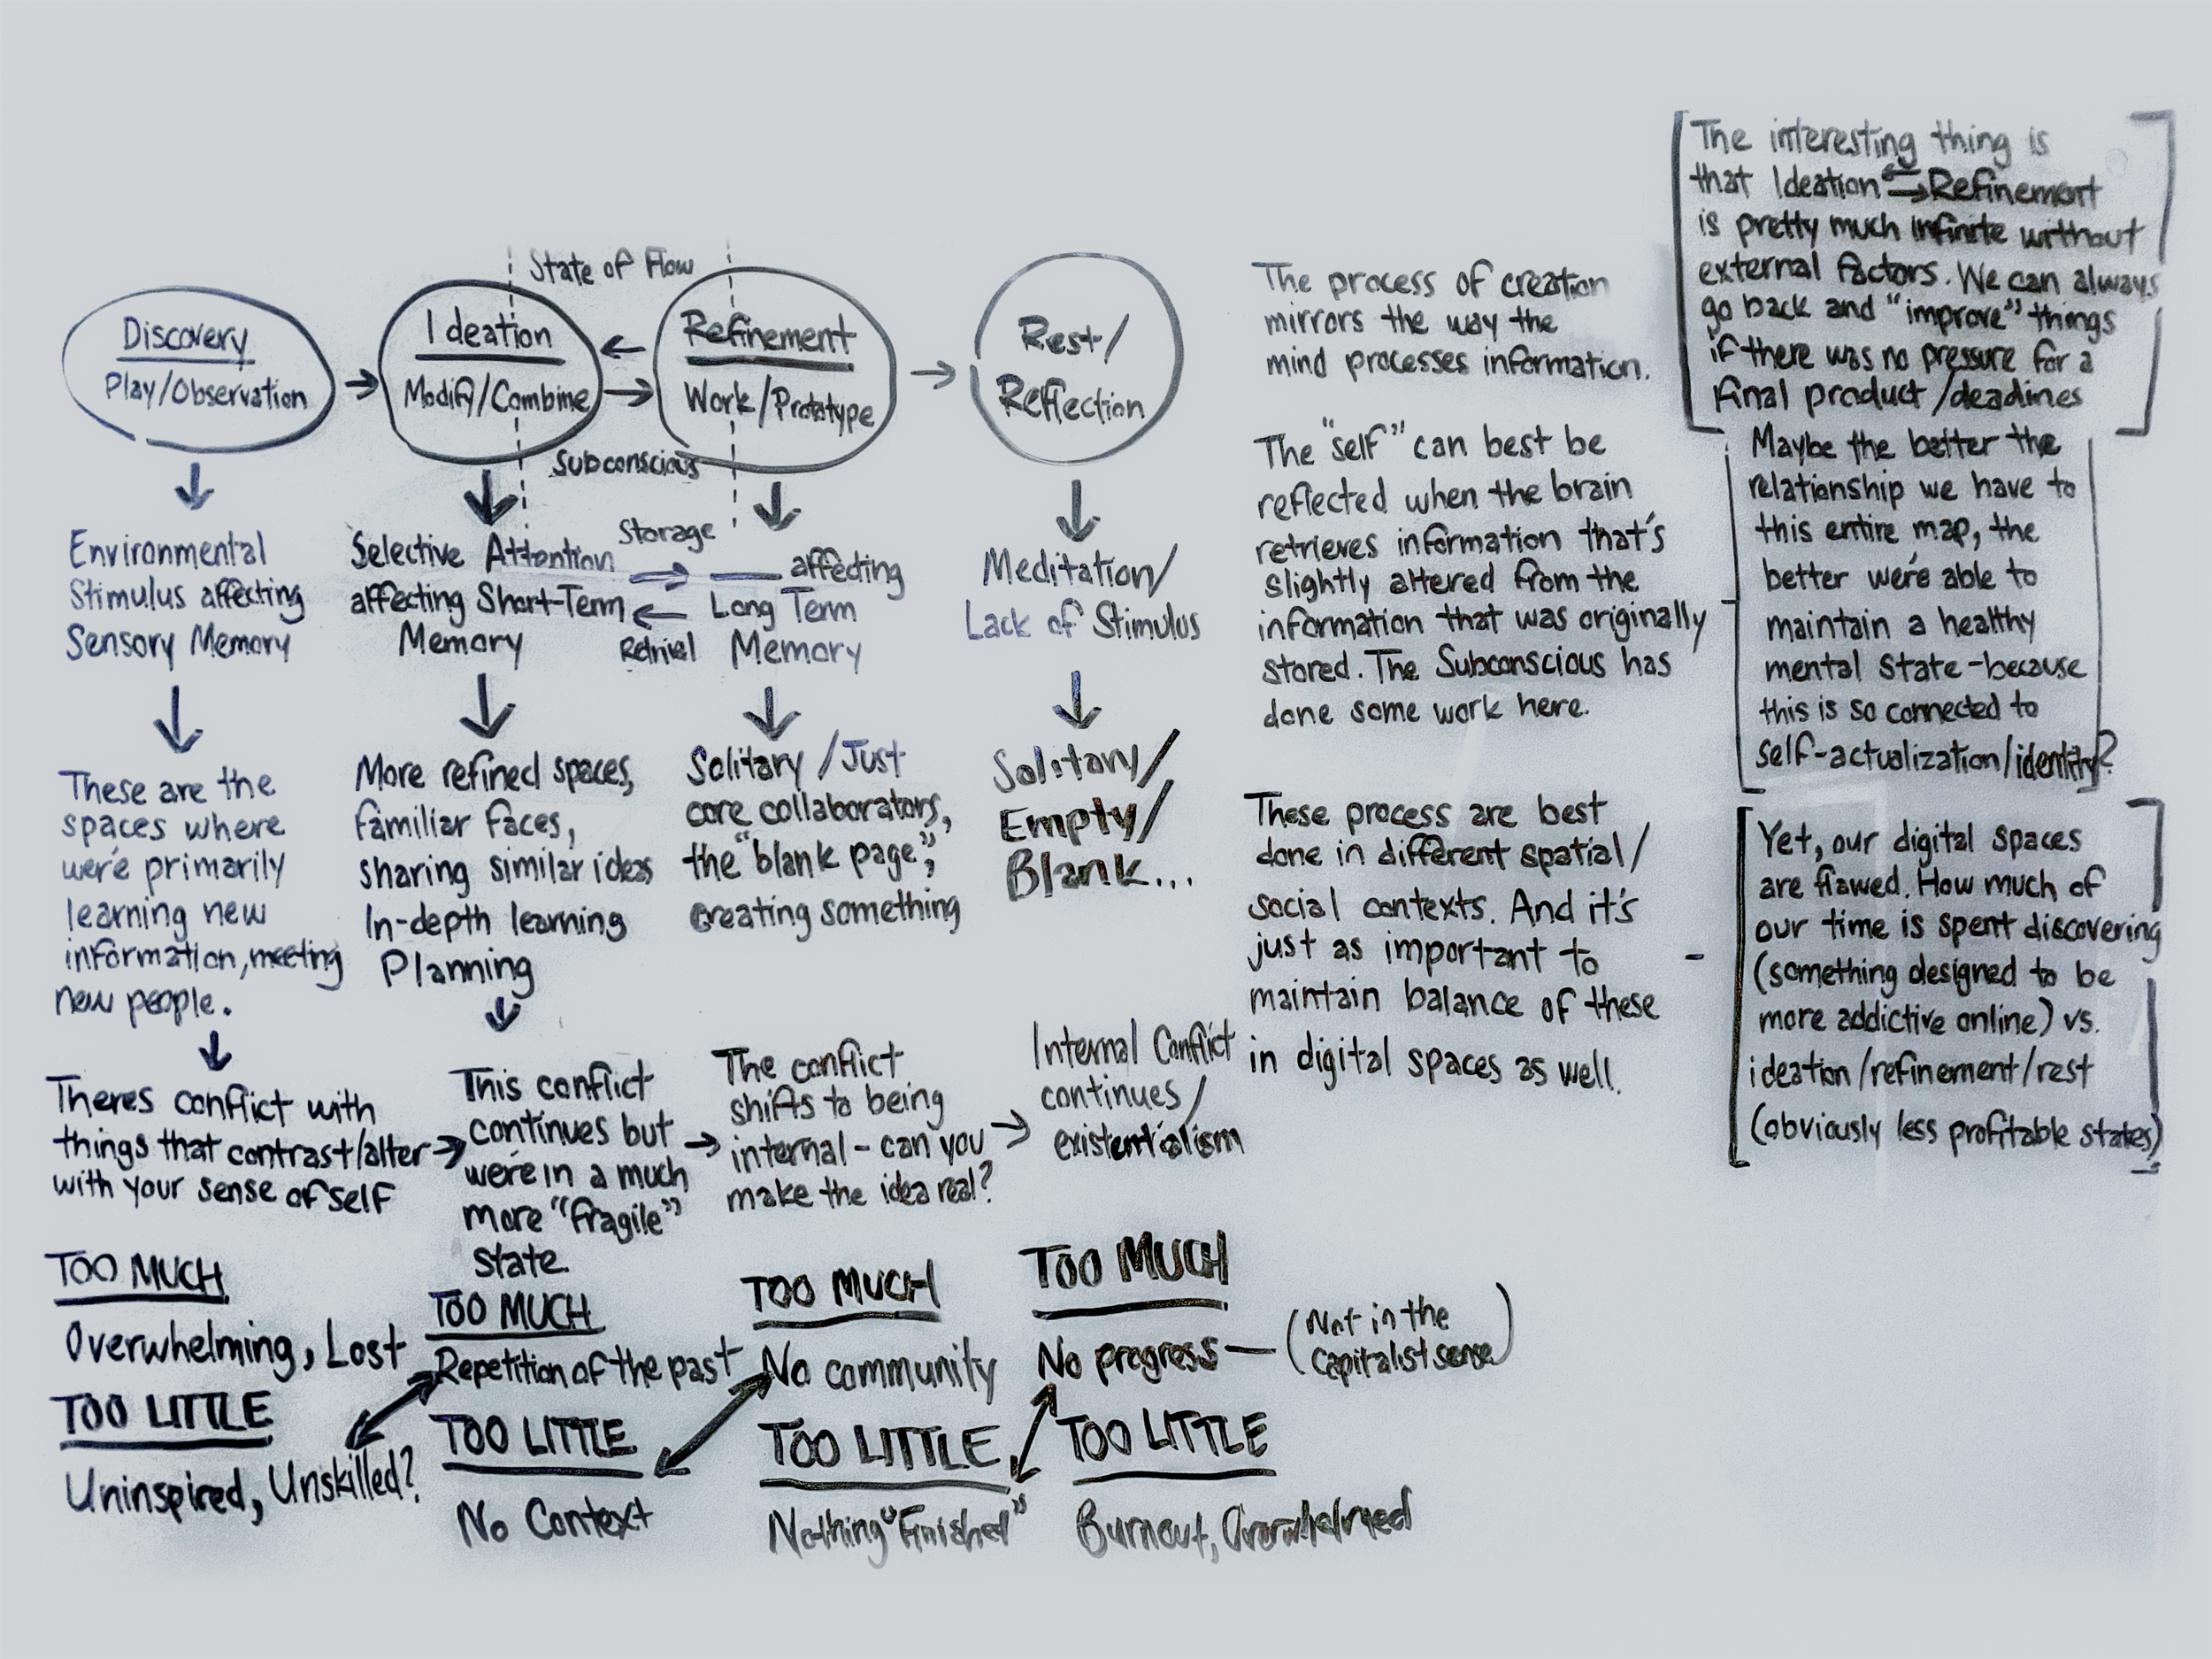 State of Flow
Discovery
Play/Observation
Ideation
Modify/Combine
Refinement
Work/Prototype
Rest/
Reflection
Subconscious
Environmental
Stimulus affecting
Sensory Memory
Selective Attention
affecting Short-Term
Memory
Storage
Retrival
affecting
Long Term
Memory
Meditation/
Lack of Stimulus
These are the
spaces where
we're primarily
learning new
information, meeting
new people.
More refined spaces,
familiar faces,
sharing similar ideas
In-depth learning
Planning
Solitary /Just
core collaborators,
the "blank page",
creating something
Solitary/
Empty/
Blank...
Theres conflict with
things that contrast/alter
with your sense of self
This conflict
continues but
we're in a much
more "fragile"
state.
The conflict
shifts to being
internal - can you
make the idea real?
Internal Conflict
continues/
existentialism
TOO MUCH
Overwhelming, Lost
TOO LITTLE
Uninspired, Unskilled?
TOO MUCH
Repetition of the past
TOO LITTLE
No Context
TOO MUCH
No community
TOO LITTLE
Nothing "Finished"
TOO MUCH
No progress — (Not in the
Capitalist sense)
TOO LITTLE
Burnout, Overwhelmed
The process of creation
mirrors the way the
mind processes information.
The "self" can best be
reflected when the brain
retrieves information that's
slightly altered from the
information that was originally
stored. The Subconscious has
done some work here.
These process are best
done in different spatial/
social contexts. And it's
just as important to
maintain balance of these
in digital spaces as well.
The interesting thing is
that Ideation ⇆ Refinement
is pretty much infinite without
external factors. We can always
go back and "improve" things
if there was no pressure for a
final product/deadines
Maybe the better the
relationship we have to
this entire map, the
better we're able to
maintain a healthy
mental state - because
this is so connected to
self-actualization/identity?
Yet, our digital spaces
are flawed. How much of
our time is spent discovering
(something designed to be
more addictive online) vs.
ideation/refinement/rest
(obviously less profitable states)